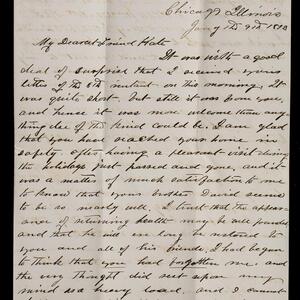 Chicago Illinois
Jany the 9th 18
My Dearest Friend Kate
It was with a good
deal of surprise that I received yours
letter of the 8th instant on this morning. It
was quite short but still it was from you,
and hence it was more welcome than any
thing else of the kind could be. I am glad
that you have reached your home in
safety after having a pleasant visit during
the holidays just passed and gone, and it
was a matter of much satisfaction to me
to know that your brother David seems
to be so nearly well. I trust that the appear-
ance of returning health may be well founded
and that he will ere long be restored to
you and all of his friends. I had begun
to think that you had forgotten me and
the very thought did rest upon my
mind as a heavy load, and I cannot